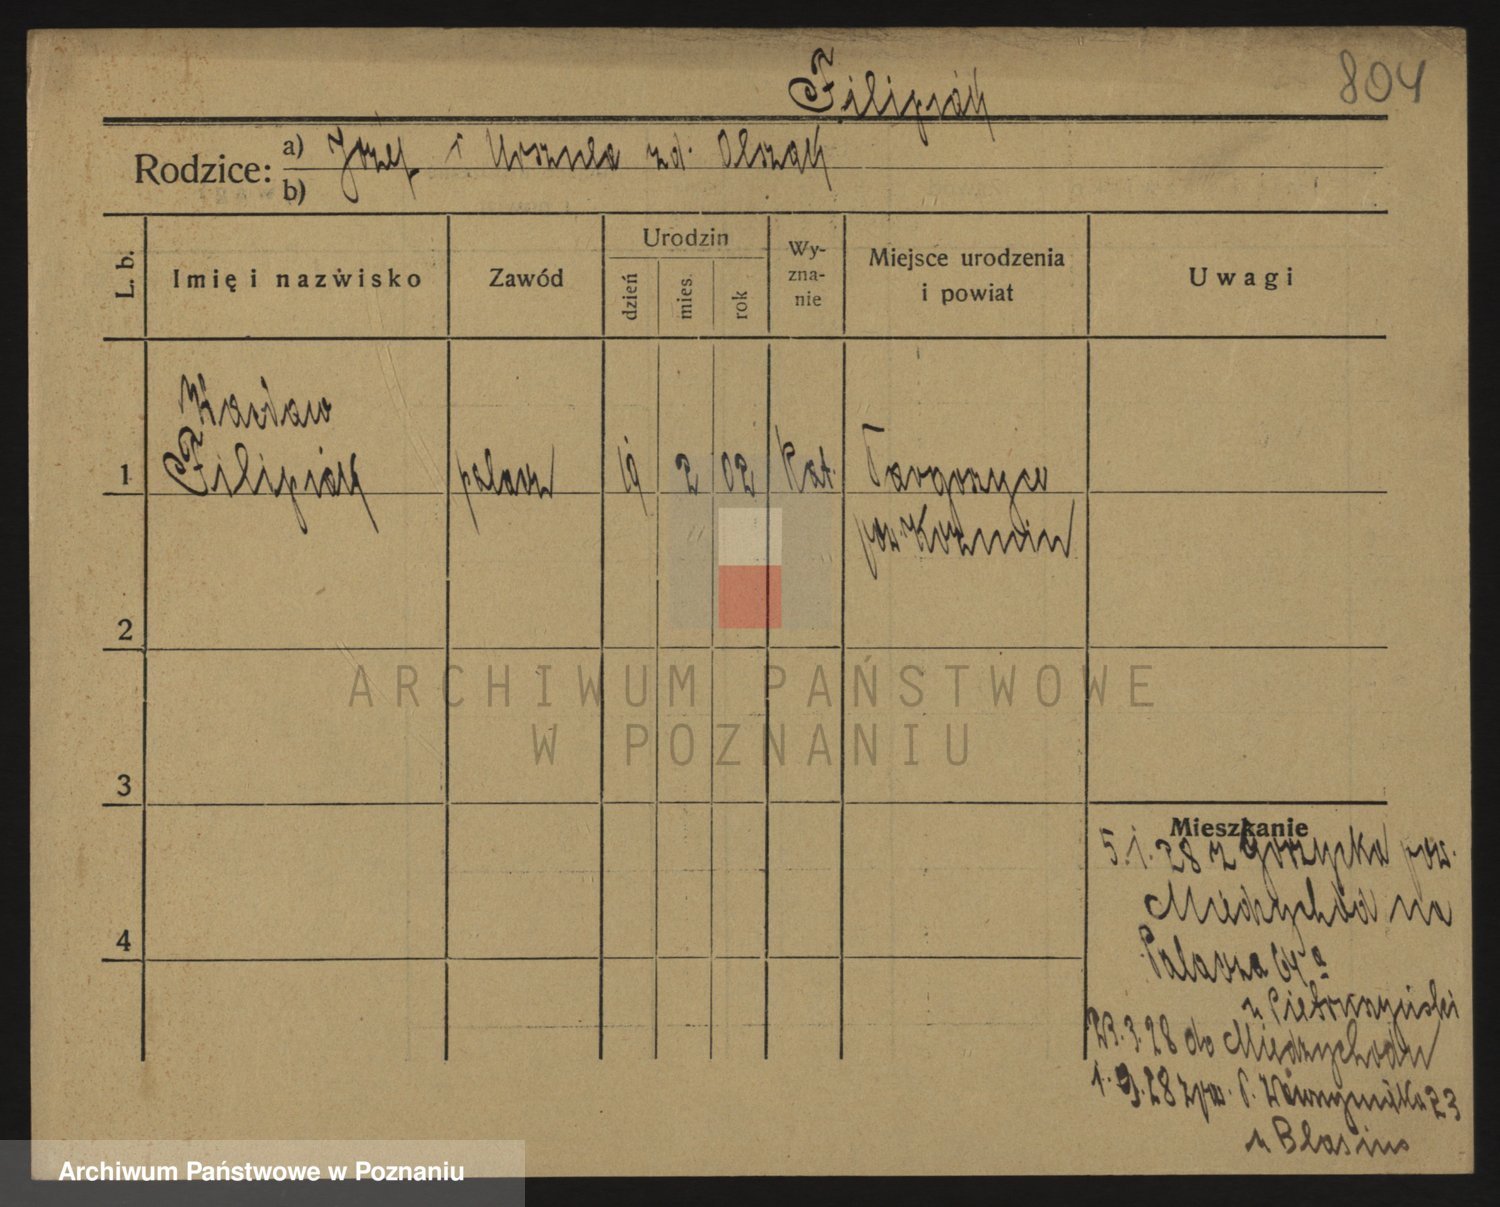 Filipiak
804
Rodzice: a) Józef i Urszula zd. Olszak
b)
L. b.
Imię i nazwisko
Zawód
Urodzin
dzień
mies.
rok
Wy-
zna-
nie
Miejsce urodzenia
i powiat
Uwagi
Wacław
1 Filipiak palacz 19 2 02 kat. Targoszyce
pow. Koźmin
2
3
4
Mieszkanie
5.1.28 z Gorzycka pow.
Miedzychód na
64a
u Pietrzyński
3.28 do Miedzychodu
1.9.28 z pow. 23
u Blasius
ARCHIWUM PAŃSTWOWE
W POZNANIU
Archiwum Państwowe w Poznaniu